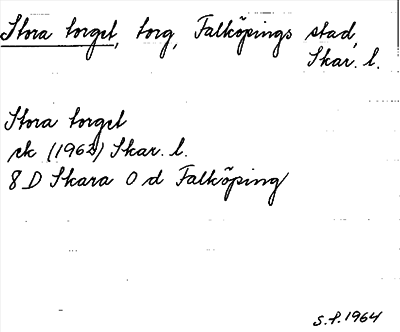 Stora torget, torg, Falköpings stad,
Skar. l.
Stora torget
ek (1963) Skar. l.
8 D Skara 0 d Falköping
S.F. 1964